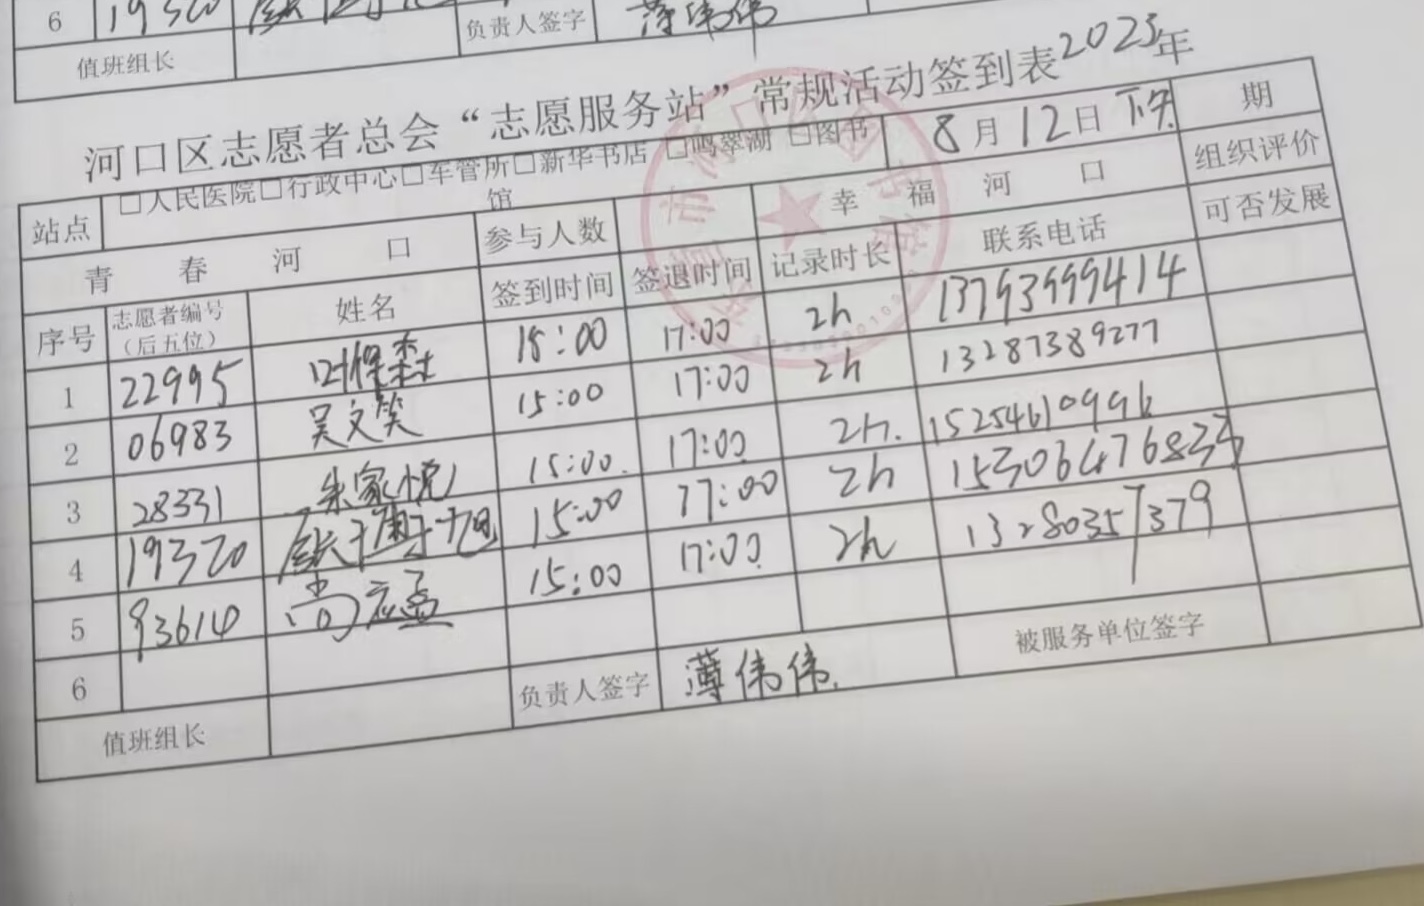 6 19320
负责人签字 薄伟伟
值班组长
河口区志愿者总会“志愿服务站”常规活动签到表2025年
站点 □人民医院□行政中心□车管所□新华书店 □鸣翠湖 □图书馆 8月12日 期
青春河口 参与人数 幸福河口 组织评价
序号 志愿者编号（后五位） 姓名 签到时间 签退时间 记录时长 联系电话 可否发展
1 22995 15:00 17:00 2h 13793999414
2 06983 吴文笑 15:00 17:00 2h 13287389277
3 28331 朱家悦 15:00. 17:00 2h. 15254610996
4 19320 15:00 17:00 2h 15306476833
5 93614 尚应孟 15:00 17:00 2h 13280357379
6
值班组长 负责人签字 薄伟伟. 被服务单位签字